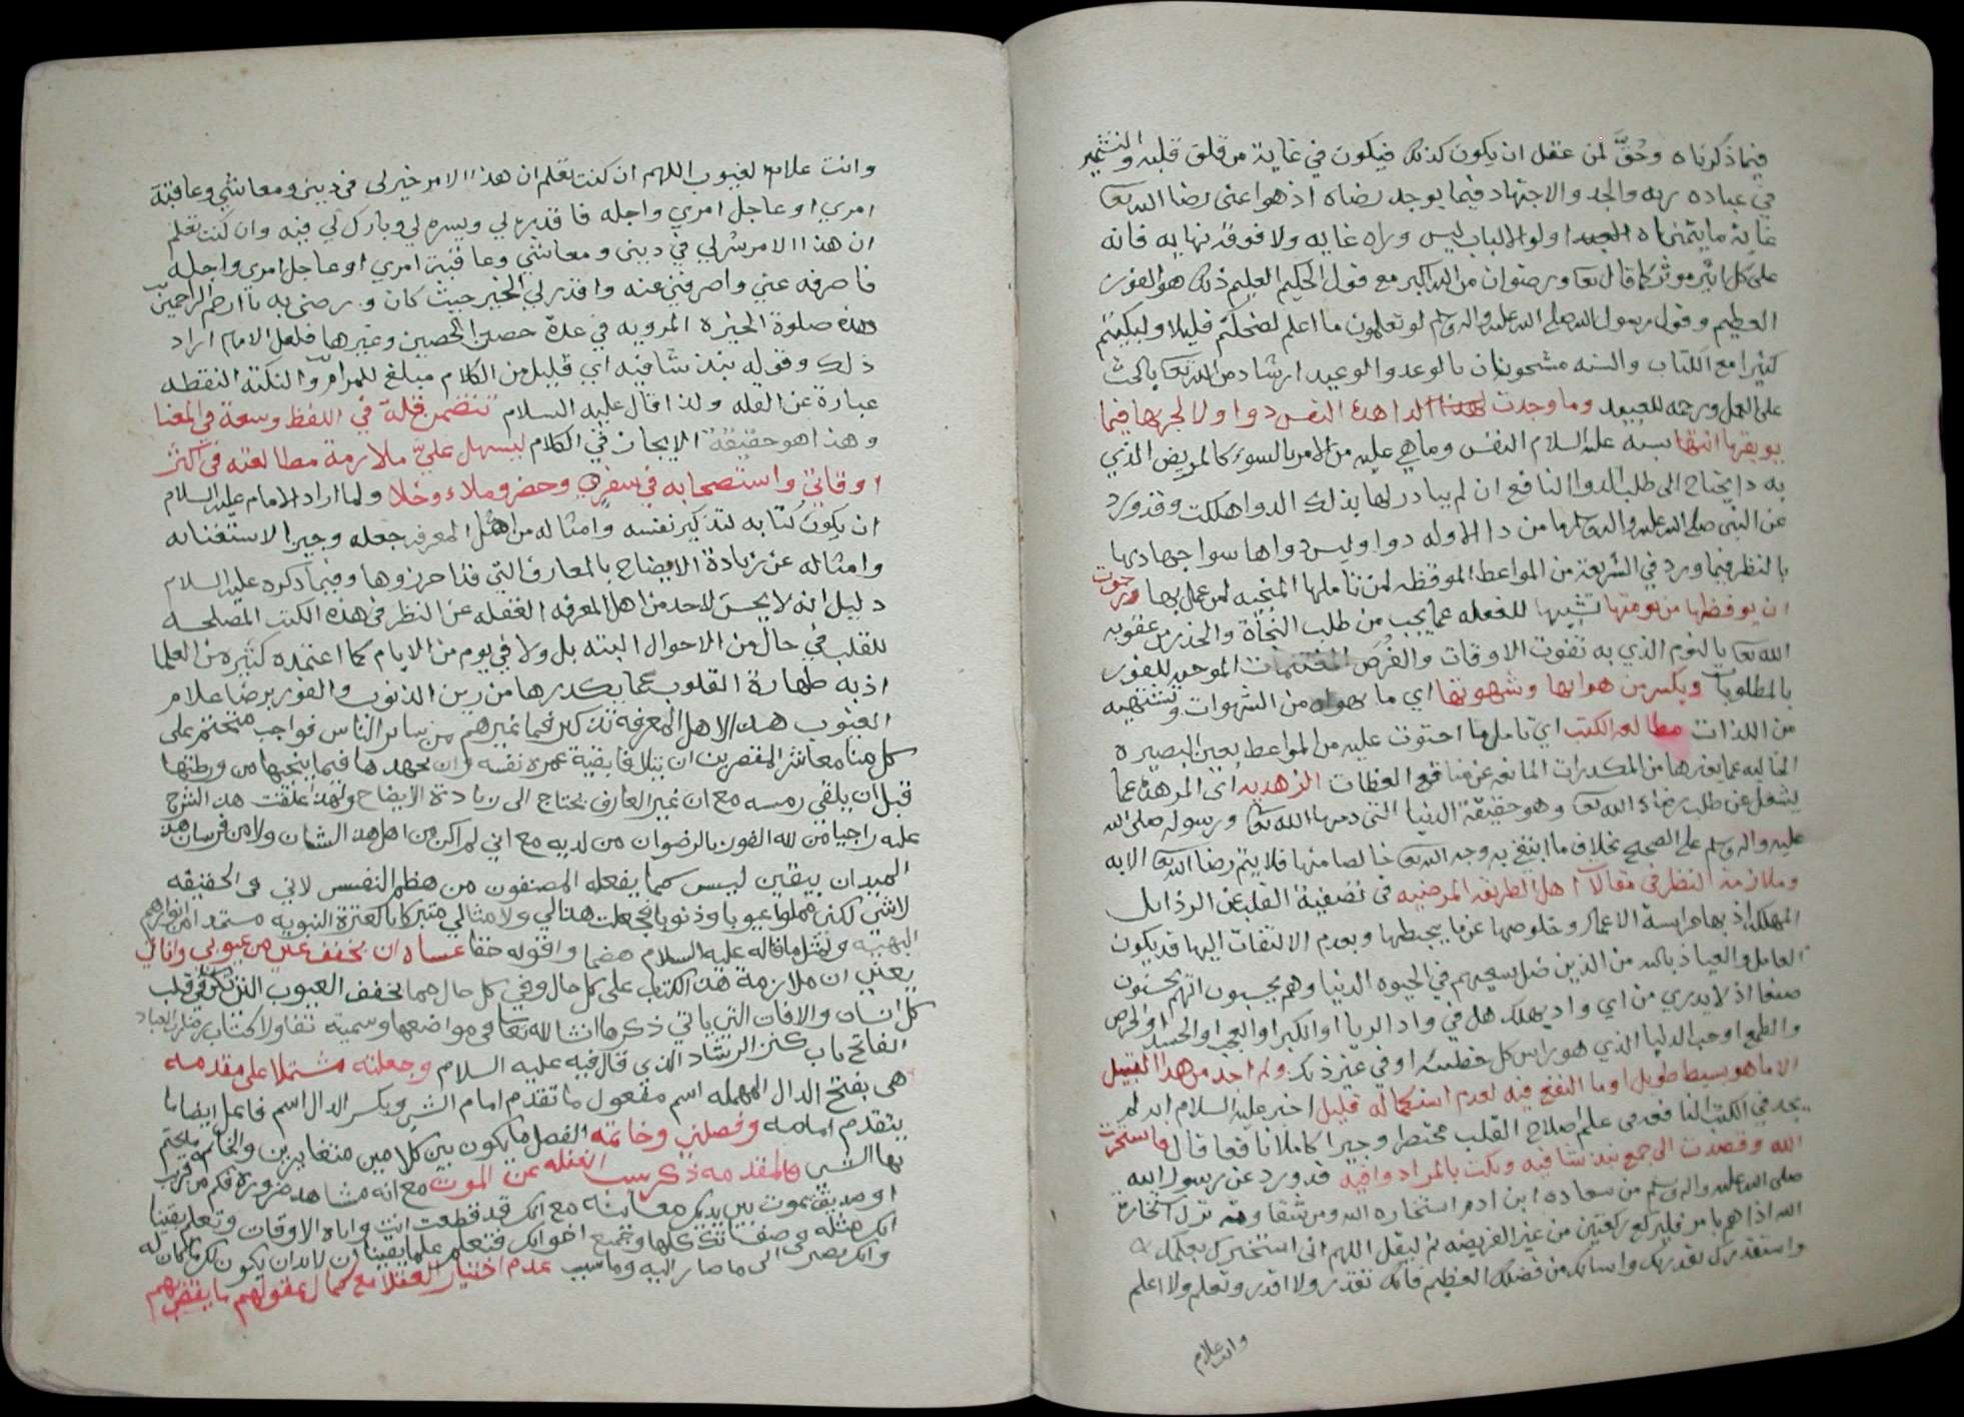 فيما ذكرناه وحُقَّ لمن عقل ان يكون كذلك فيكون في غاية من قلق قلبه والتشمير
في عباده ربه والجد والاجتهاد فيما يوجد رضاه اذ هو اعنى رضا الله تعا
غاية ما يتمناه اولو الالباب ليس وراه غايه ولا فوقه نهايه فانه
على كل اثر موثر كما قال تعا ورضوان من الله اكبر مع قول الحكيم العليم ذلك هو الفوز
العظيم وقول رسول الله صلى الله عليه واله وسلم لو تعلمون ما اعلم لضحكتم قليلا ولبكيتم
كثيرا مع الكتاب والسنه مشحونان بالوعد والوعيد ارشاد من الله تعا بالحث
على العمل ورحمه للعبيد وما وجدت لهذا الداهذه النفس دوا ولا لجربها فيما
يوبقها انتها سبه عليه السلام النفس وما هي عليه من الامر بالسوء كالمريض الذي
به دا يحتاج الى طلب الدوا النافع ان لم يبادر لها بذلك الدوا هلكت وقد ورد
عن النبي صلى الله عليه واله وسلم ما من دا الا وله دوا وليس دواها سوا جهادها
بالنظر فيما ورد في الشريعة من المواعظ الموقظه لمن تاملها المنجيه لمن عمل بها ورجوت
ان يوقظها من نومتها تشبيها للغفله عما يجب من طلب النجاة والحذر من عقوبه
الله تعا بالنوم الذي به تفوت الاوقات والفُرَص المغتنمات الموجبه للفوز
بالمطلوبات ويكسر من هواها وشهوتها اي ما تهواه من الشهوات وتشتهيه
من اللذات مطالعه الكتب اي تاملها احتوت عليه من المواعظ بعين البصيره
الخاليه عما يغيرها من المكدرات المانعه عن منافع العظات الزهديه اي المزهده عما
يشغل عن طلب رضاء الله تعا وهو حقيقة الدنيا التي ذمها الله تعا ورسوله صلى الله
عليه واله وسلم على الصحيح بخلاف ما ابتغي به وجه الله تعا خالصا منها فلا يتم رضا الله تعا الا به
وملازمة النظر في مقالات اهل الطريقه المرضيه في تصفية القلب عن الرذايل
المهلكه اذ بها حراسة الاعمال وخلوصها عن ما يحبطها وبعدم الالتفات اليها قد يكون
العامل والعياذ بالله من الذين ضل سعيهم في الحيوه الدنيا وهم يحسبون انهم يحسنون
صنعا اذ لا يدري من اي واد يهلك هل في واد الريا او الكبر او العجب او الحسد او الحرص
والطمع او حب الدنيا الذي هو راس كل خطيئه او في غير ذلك ولم اجد من هذا القبيل
الا ما هو بسيط طويل او ما النفع فيه لعدم استكماله قليل اخبر عليه السلام انه لم
يجد في الكتب النافعه في علم اصلاح القلب مختصر وجيزا كاملا نافعا قال فاستخرت
الله وقصدت الى جمع نبذ شافيه ونكت بالمراد وافيه قد ورد عن رسول الله
صلى الله عليه واله وسلم من سعاده ابن ادم استخاره الله ومن شقاوته ترك استخارة
الله اذا هم بامر فليركع ركعتين من غير الفريضه ثم ليقل اللهم اني استخيرك بعلمك
واستقدرك بقدرتك واسالك من فضلك العظيم فانك تقدر ولا اقدر وتعلم ولا اعلم
وانت علام
وانت علام الغيوب اللهم ان كنت تعلم ان هذا الامر خير لي في ديني ومعاشي وعاقبة
امري او عاجل امري واجله فاقدره لي ويسره لي وبارك لي فيه وان كنت تعلم
ان هذا الامر شر لي في ديني ومعاشي وعاقبة امري او عاجل امري واجله
فاصرفه عني واصرفني عنه واقدر لي الخير حيث كان ورضني به يا ارحم الراحمين
وهذه صلوة الخيره المرويه في عدة حصن الحصين وغيرها فلعل الامام اراد
ذلك وقوله نبذ شافيه اي قليل من الكلام مبلغ للمرام والنكته النقطه
عبارة عن القله ولذا قال عليه السلام تتضمن قلة في اللفظ وسعة في المعنا
وهذا هو حقيقة الايجاز في الكلام ليسهل عليَّ ملازمة مطالعته في اكثر
اوقاتي واستصحابه في سفري وحضر وملاء وخلا ولما اراد الامام عليه السلام
ان يكون كتابه لتذكير نفسه وامثاله من اهل المعرفه جعله وجيزا لاستغنائه
وامثاله عن زيادة الايضاح بالمعارف التي قد احرزوها وفيما ذكره عليه السلام
دليل انه لا يحسن لاحد من اهل المعرفه الغفله عن النظر في هذه الكتب المصلحه
للقلب في حال من الاحوال البته بل ولا في يوم من الايام كما اعتمده كثير من العلما
اذ به طهارة القلوب عما يكدرها من رين الذنوب والفوز برضا علام
الغيوب هذا لاهل المعرفه تذكير فيما غيرهم من ساير الناس فواجب متحتم على
كل منا معاشر المقصرين ان يتلافا بقية عمره نفسه وان يجهدها فيما ينجيها من ورطتها
قبل ان يلقى رمسه مع ان غير العارف يحتاج الى زيادة الايضاح ولهذا علقت هذا الشرح
عليه راجيا من الله الفوز بالرضوان من لديه مع اني لم اكن من اهل هذا الشان ولا من فرسان هذا
الميدان بيقين ليس كما يفعله المصنفون من هظم النفس لاني في الحقيقه
لاشي لكني مملوا عيوبا وذنوبا فجعلت هذا لي ولامثالي متبركا بالعترة النبويه مستمدا من انوارهم
البهيه ونقل ما قاله عليه السلام هضما واقوله حقا عساه ان يخفف عني من عيوبي واناتي
يعني ان ملازمة هذا الكتاب على كل حال وفي كل حال مما يخفف العيوب التي تكون في قلب
كل انسان والافات التي ياتي ذكرها انشا الله تعا في مواضعها وسميته تفاولا كتاب
الفاتح باب كنز الرشاد الذي قال فيه عليه السلام وجعلته مشتملا على مقدمه
هي بفتح الدال المهمله اسم مفعول ما تقدم امام الشي وبكسر الدال اسم فاعل ايضا ما
يتقدم امامه وفصلين وخاتمه الفصل ما يكون بين كلامين متغايرين والخاتمه ما يختم
بها الشي فالمقدمه ذكر سبب الغفله عن الموت مع انه مشاهد ضرورة فكم من قريب
او صديق يموت بين يديك معاينه مع انك قد قطعت انت واياه الاوقات وتعلم يقينا
انك مثله في صفاتك كلها وجميع احوالك فتعلم علما يقينا ان لا بد ان يكون لك ما كان له
وانك تصير الى ما صار اليه وما سبب عدم اختيار العقلا مع كمال عقولهم ما ينقذهم